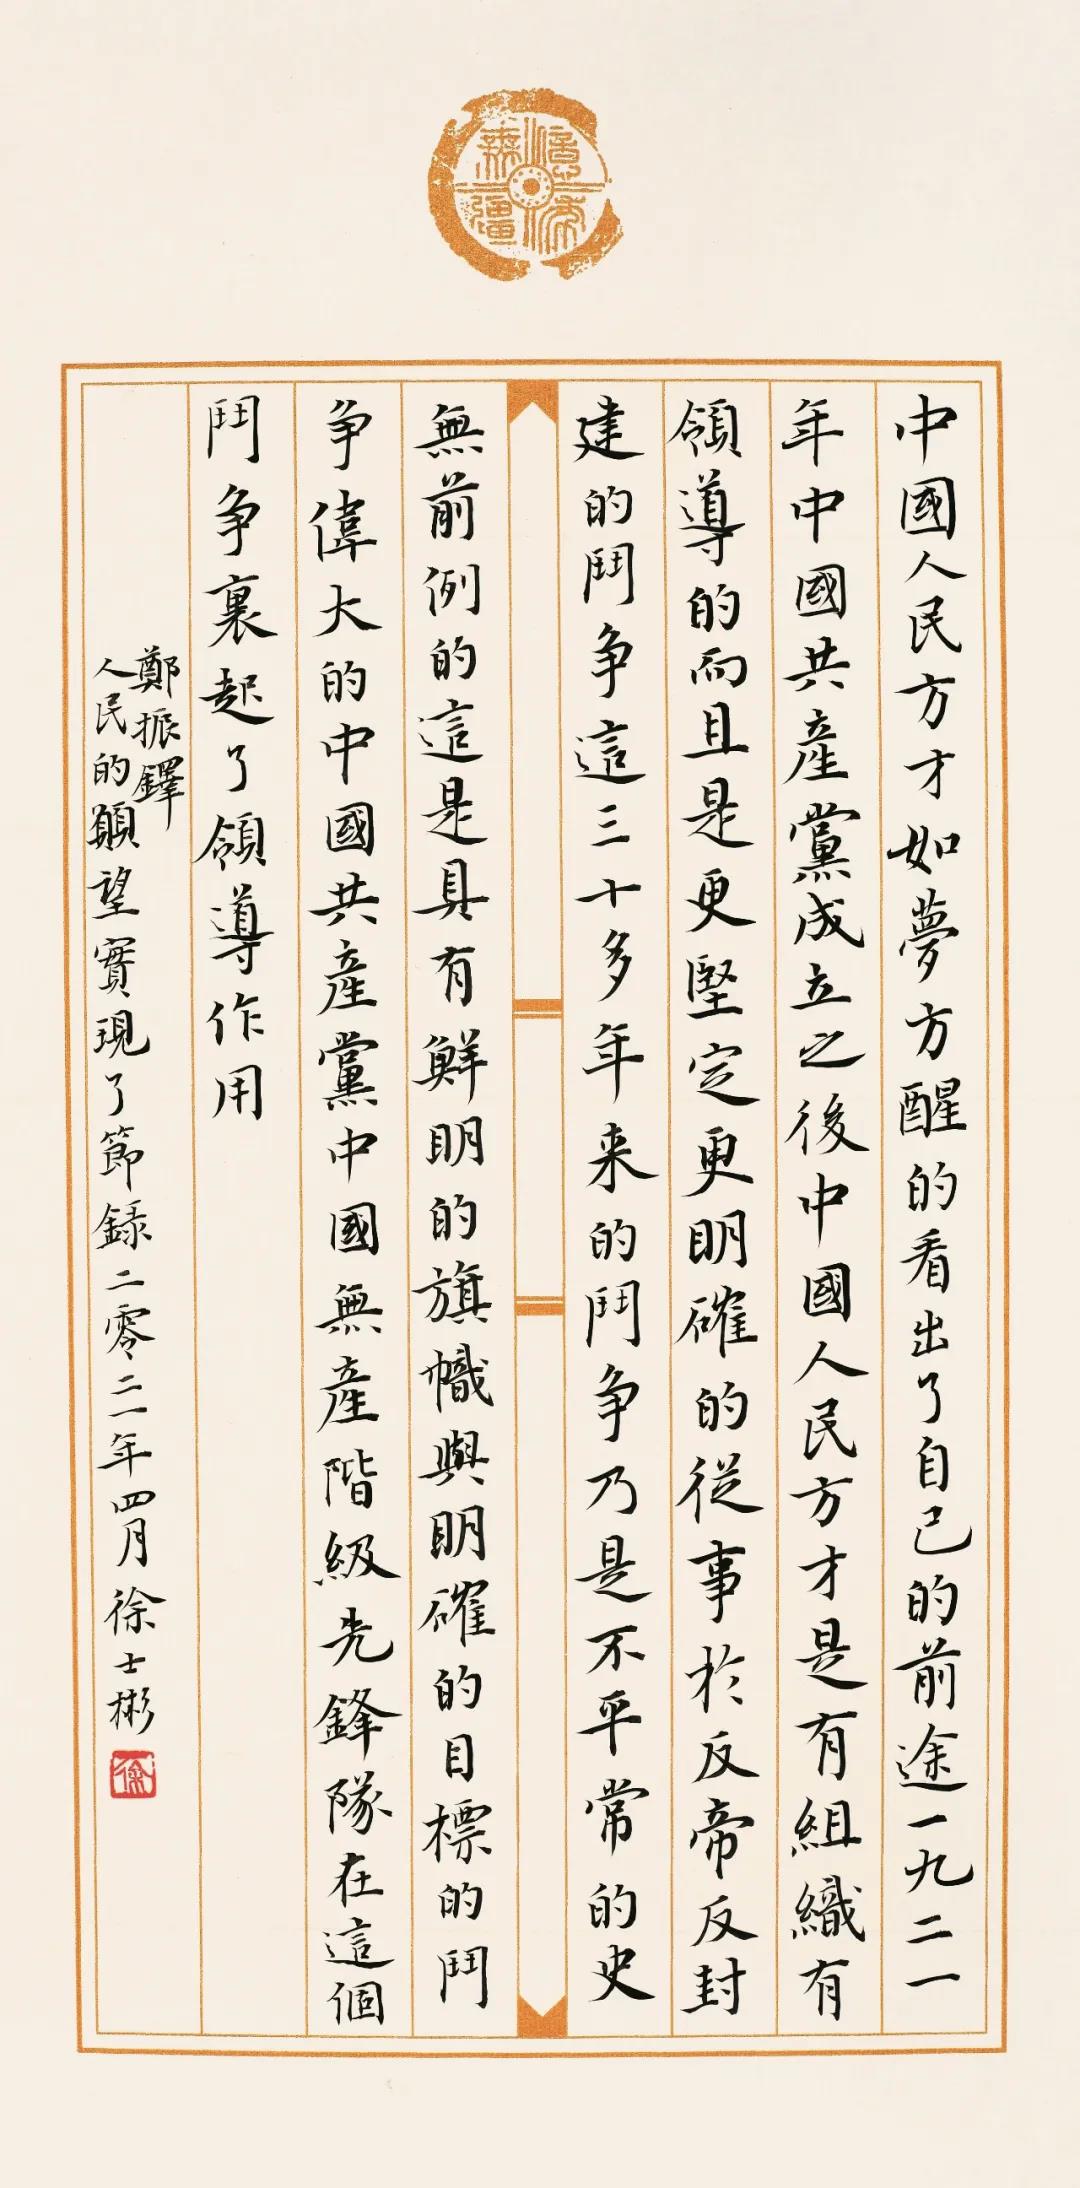 中國人民方才如夢方醒的看出了自己的前途一九二一
年中國共産黨成立之後中國人民方才是有組織有
領導的而且是更堅定更明確的從事於反帝反封
建的鬥争這三十多年来的鬥争乃是不平常的史
無前例的這是具有鮮明的旗幟與明確的目標的鬥
争偉大的中國共産黨中國無産階級先鋒隊在這個
鬥争裏起了領導作用
鄭振鐸
人民的願望實現了節録二零二一年四月徐士彬
徐